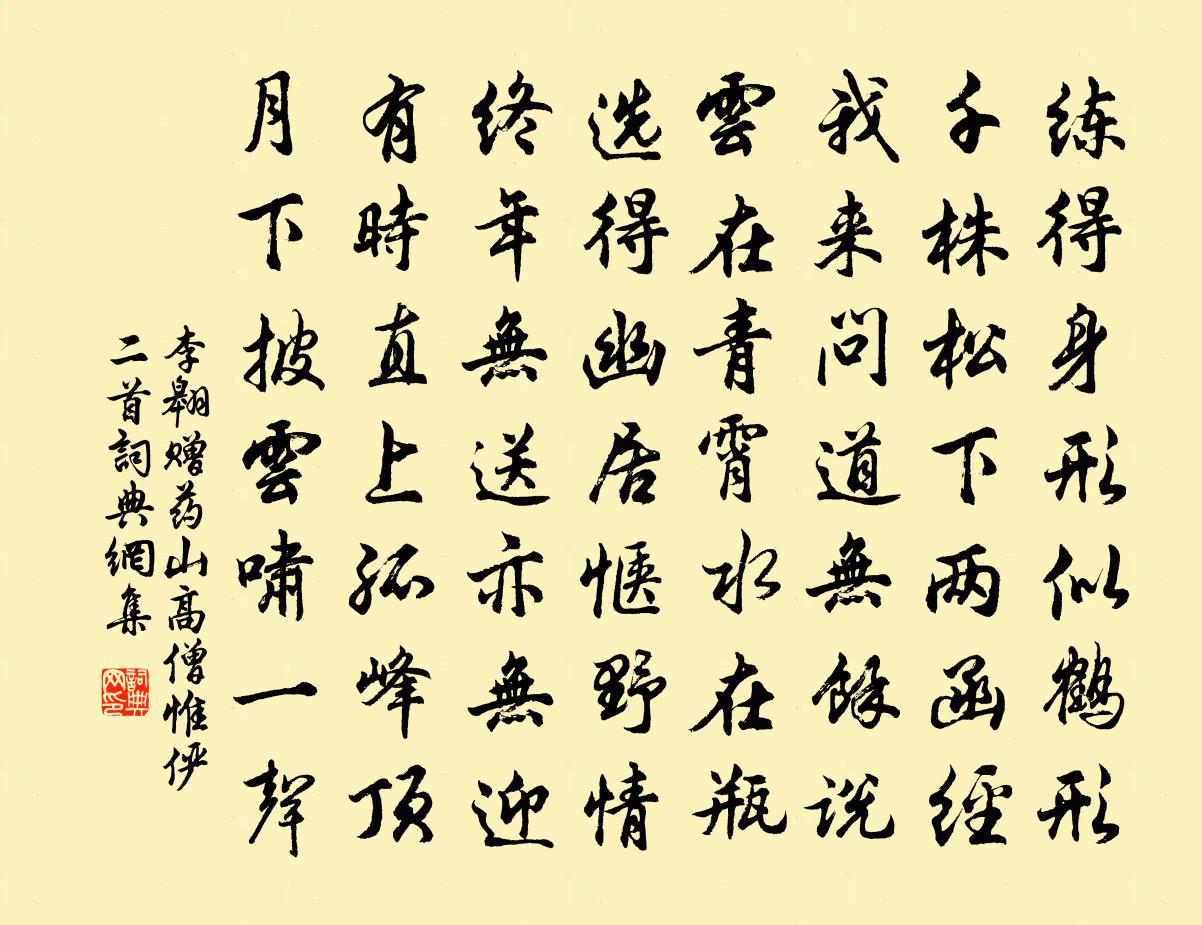 练得身形似鹤形
千株松下两函经
我来问道無餘说
雲在青霄水在瓶
选得幽居惬野情
终年無送亦無迎
有時直上孤峰顶
月下披雲啸一聲
李翱赠药山高僧惟俨
二首詞典網集
詞典
网印